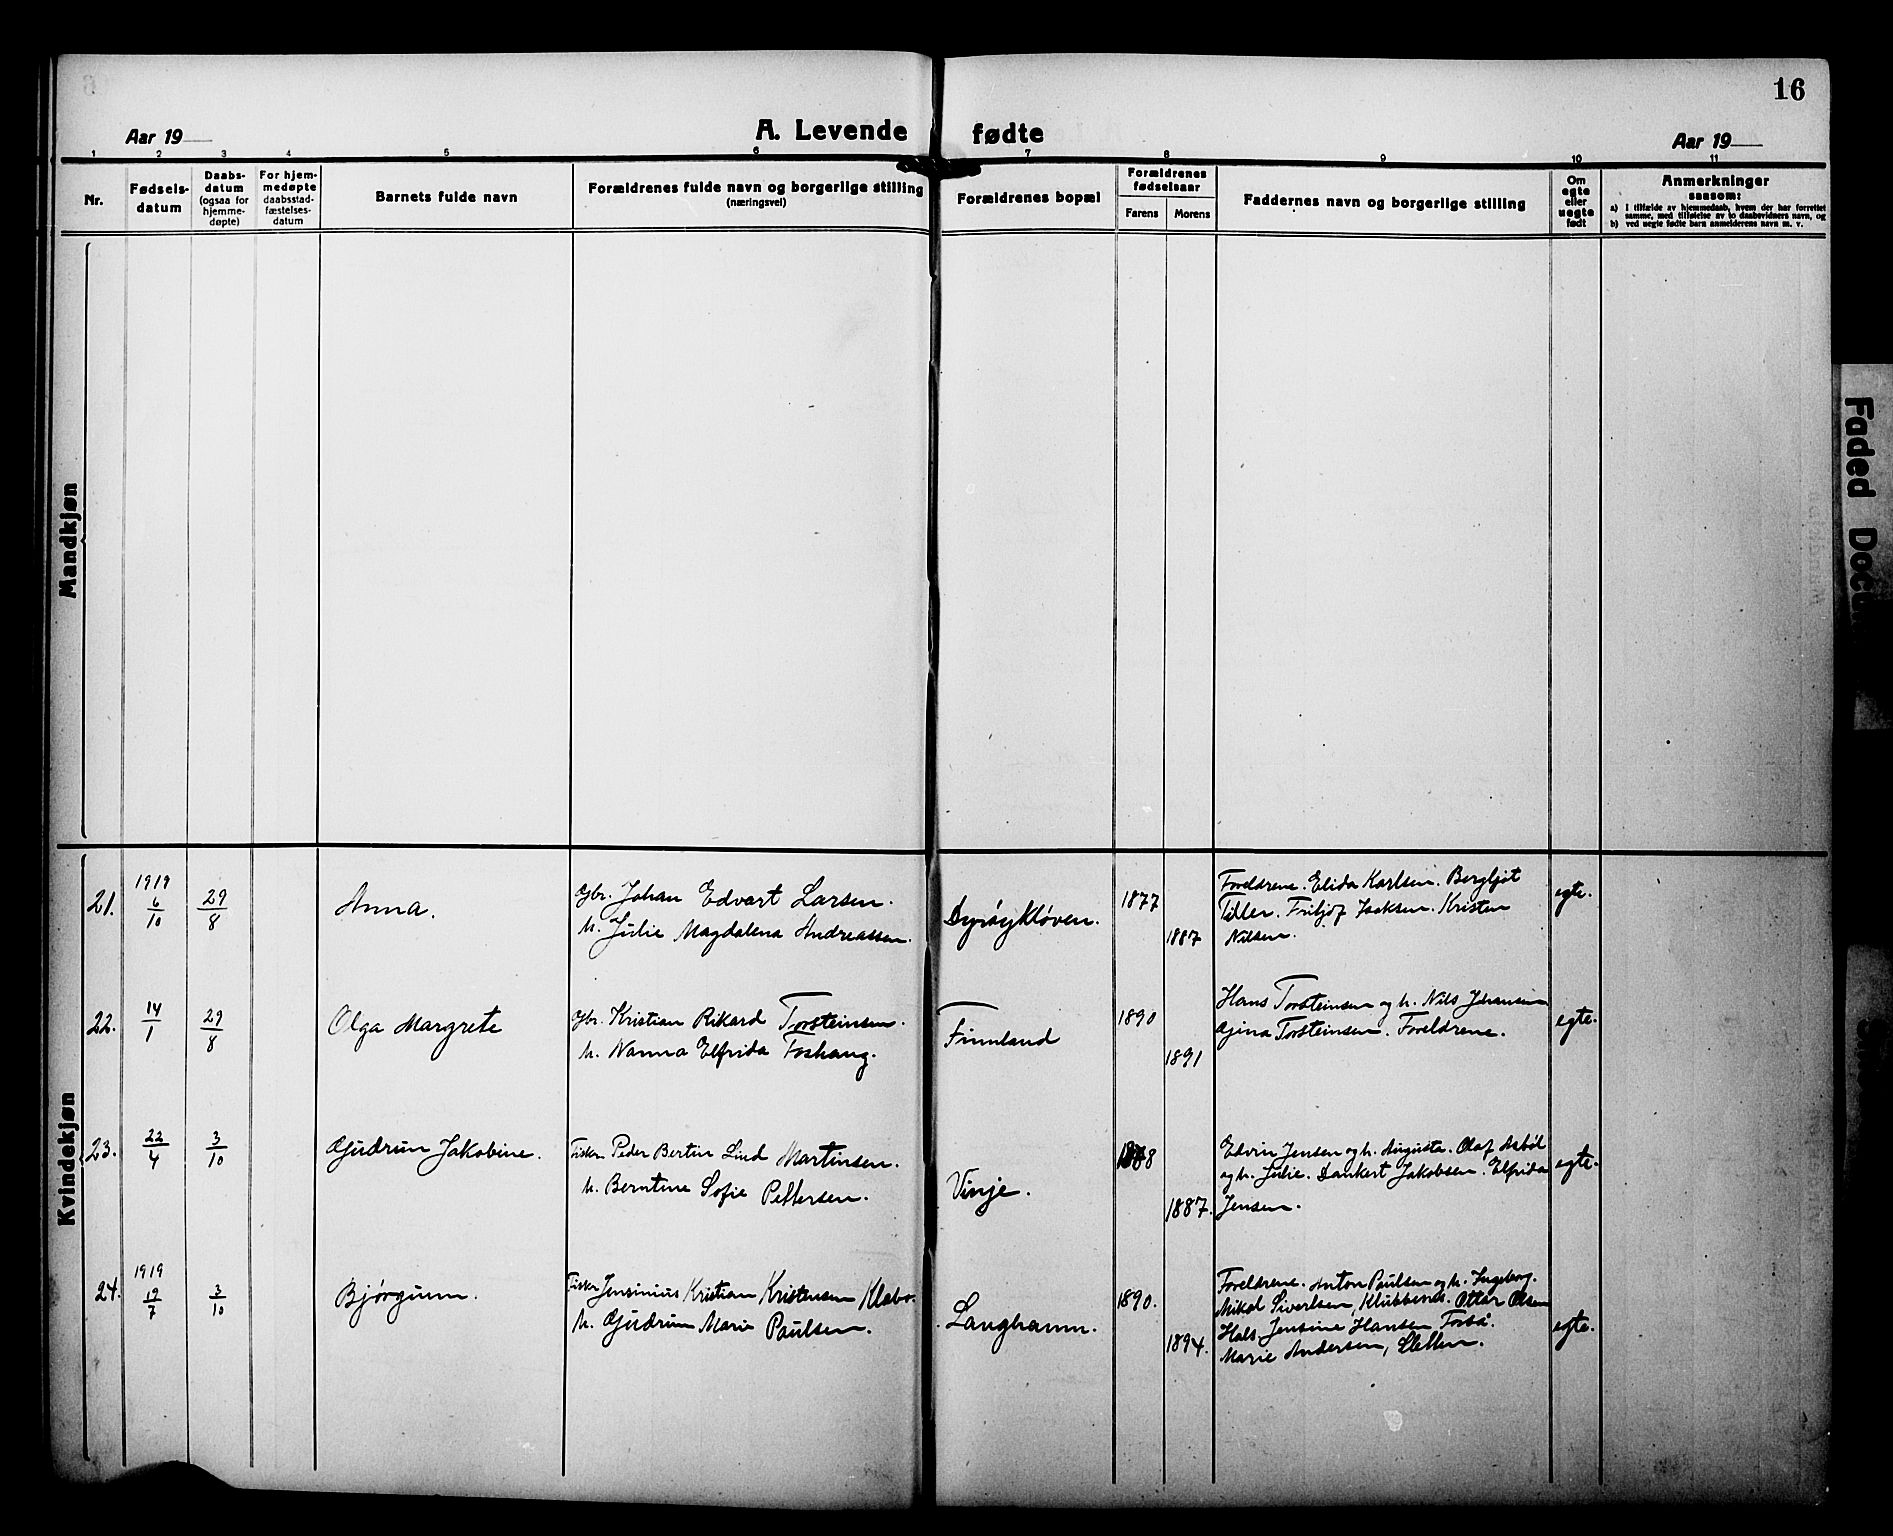 16
Aar 19
A. Levende fødte
Aar 19
1 2 3 4 5 6 7 8 9 10 11
Nr.
Fødsels-
datum
Daabs-
datum
(ogsaa for
hjemme-
døpte)
For hjem-
medøpte
daabsstad-
fæstelses-
datum
Barnets fulde navn
Forældrenes fulde navn og borgerlige stilling
(næringsvei)
Forældrenes bopæl
Forældrenes
fødselsaar
Farens
Morens
Faddernes navn og borgerlige stilling
Om
egte
eller
uegte
født
Anmerkninger
saasom:
a) I tilfælde av hjemmedaab, hvem der har forrettet
samme, med tilføielse av to daabsvidners navn, og
b) ved uegte fødte barn anmelderens navn m. v.
Mandkjøn
Kvindekjøn
21.
1919
6/10
29/8
Anna.
Gbr. Johan Edvart Larsen.
h. Julie Magdalena Andreassen.
Dyrøykløven.
1877
1887
Foreldrene. Elida Karlsen. Bergljot
Tiller. Fritjof Isaksen. Kristen
Nilsen.
egte.
22.
14/1
29/8
Olga Margrete
Gbr. Kristian Rikard Torsteinsen.
h. Nanna Elfrida Foshaug.
Finnland
1890
1891
Hans Torsteinsen og h. Nils Johansen
Torsteinsen. Foreldrene.
egte.
23.
22/4
3/10
Gjudrun Jakobine.
Fisker Peder Bertin Lind Martinsen.
h. Berntine Sofie Pettersen.
Vinje.
1888
1887.
Edvin Jensen og h. Augusta. Olaf Aabøl
og h. Julie. Dankert Jakobsen. Elfrida
Jensen.
egte.
24.
1919
19/7
3/10
Bjørgunn.
Fisker Jensinius Kristian Kristensen Klæbo.
h. Gjudrun Marie Paulsen.
Langhamn.
1890.
1894.
Foreldrene. Anton Paulsen og h. Ingeborg.
Mikal Sivertsen, Klubbenes. Ottar Olsen
Hals. Jensine Hansen Forså.
Marie Andersen, Sletten.
egte.
Faded Docu